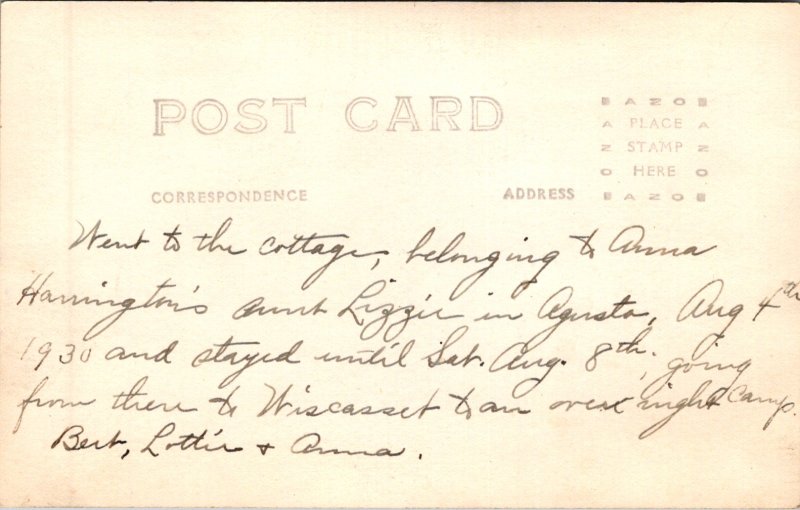 POST CARD
AZO
PLACE
STAMP
HERE
AZO
CORRESPONDENCE
ADDRESS
Went to the cottage, belonging to Anna
Harrington's aunt Lizzie in Agusta, Aug 4th
1930 and stayed until Sat. Aug. 8th, going
from there to Wiscasset to an over night Camp.
Bert, Lottie + Anna.